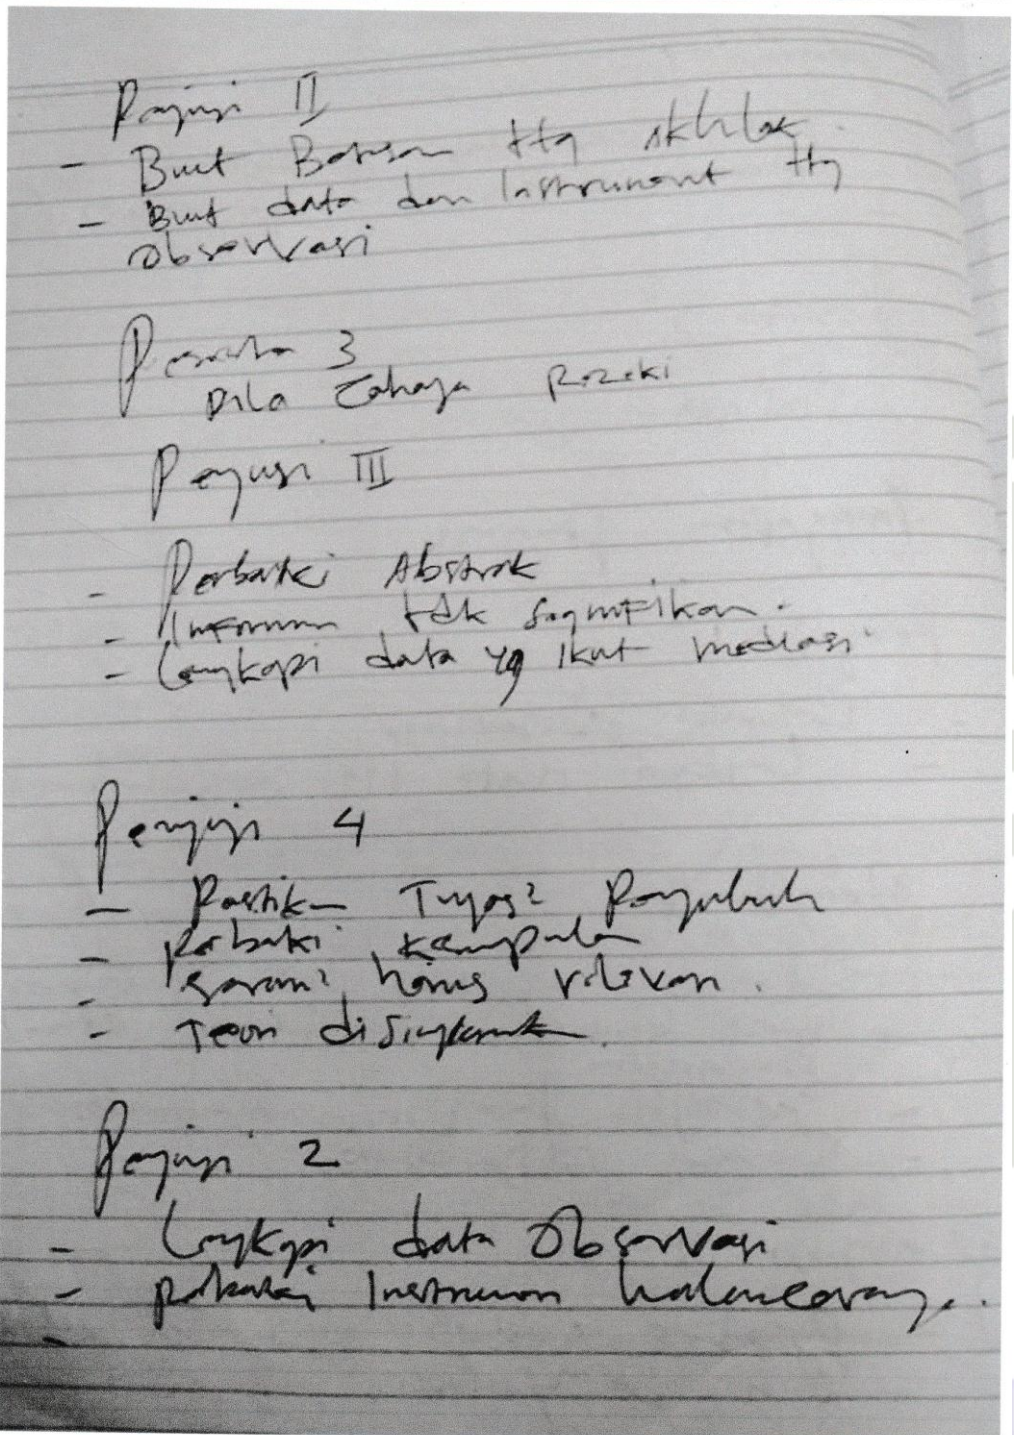 Penguji II
- Buat Batasan ttg akhlak.
- Buat data dan Instrument ttg
observasi
Peserta 3
Dila Cahaya Rezeki
Penguji III
- Perbaiki Abstrak
- Informan tdk signifikan.
- Lengkapi data yg ikut mediasi
Penguji 4
- Pastikan Tugas2 Penyuluh
- Perbaiki kesimpulan
- saran2 harus relevan.
- Teori disingkronkan.
Penguji 2
- Lengkapi data Observasi
- Perbaiki Instrumen
-